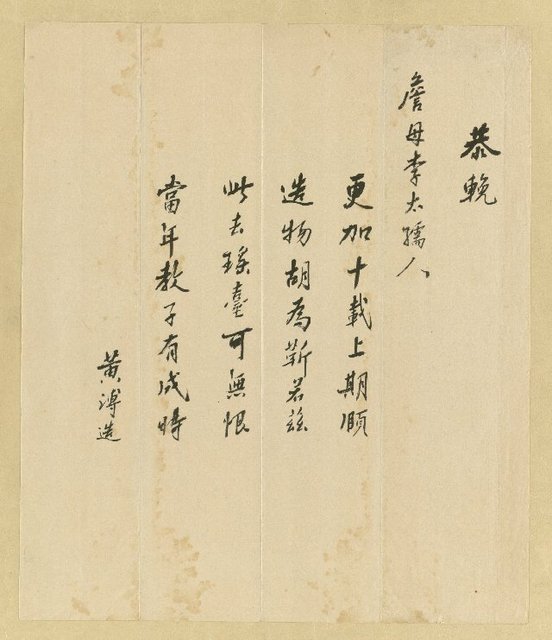 恭輓
詹母李太孺人
更加十載上期頤
造物胡為靳若茲
此去瑤臺可無恨
當年教子有成時
黃溥造